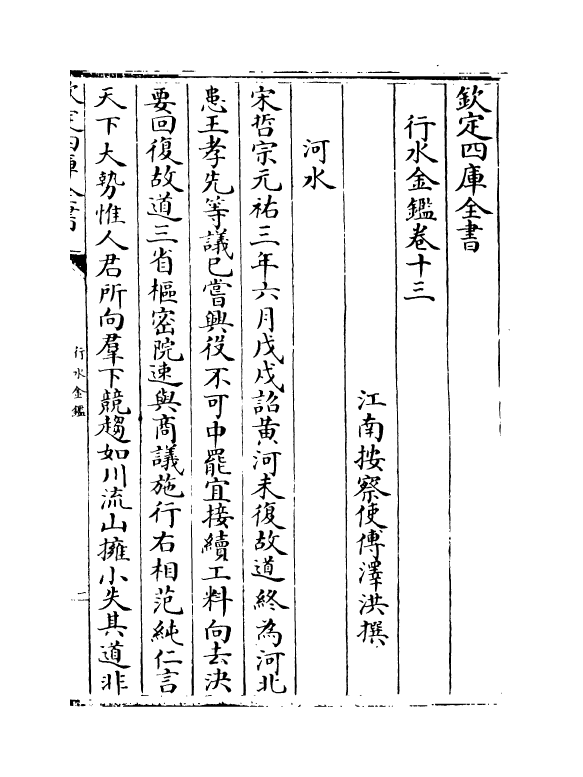 欽定四庫全書
行水金鑑卷十三
江南按察使傅澤洪撰
河水
宋哲宗元祐三年六月戊戌詔黃河未復故道終為河北
患王孝先等議已嘗興役不可中罷宜接續工料向去決
要回復故道三省樞密院速與商議施行右相范純仁言
天下大勢惟人君所向羣下競趨如川流山摧小失其道非
欽定四庫全書
行水金鑑